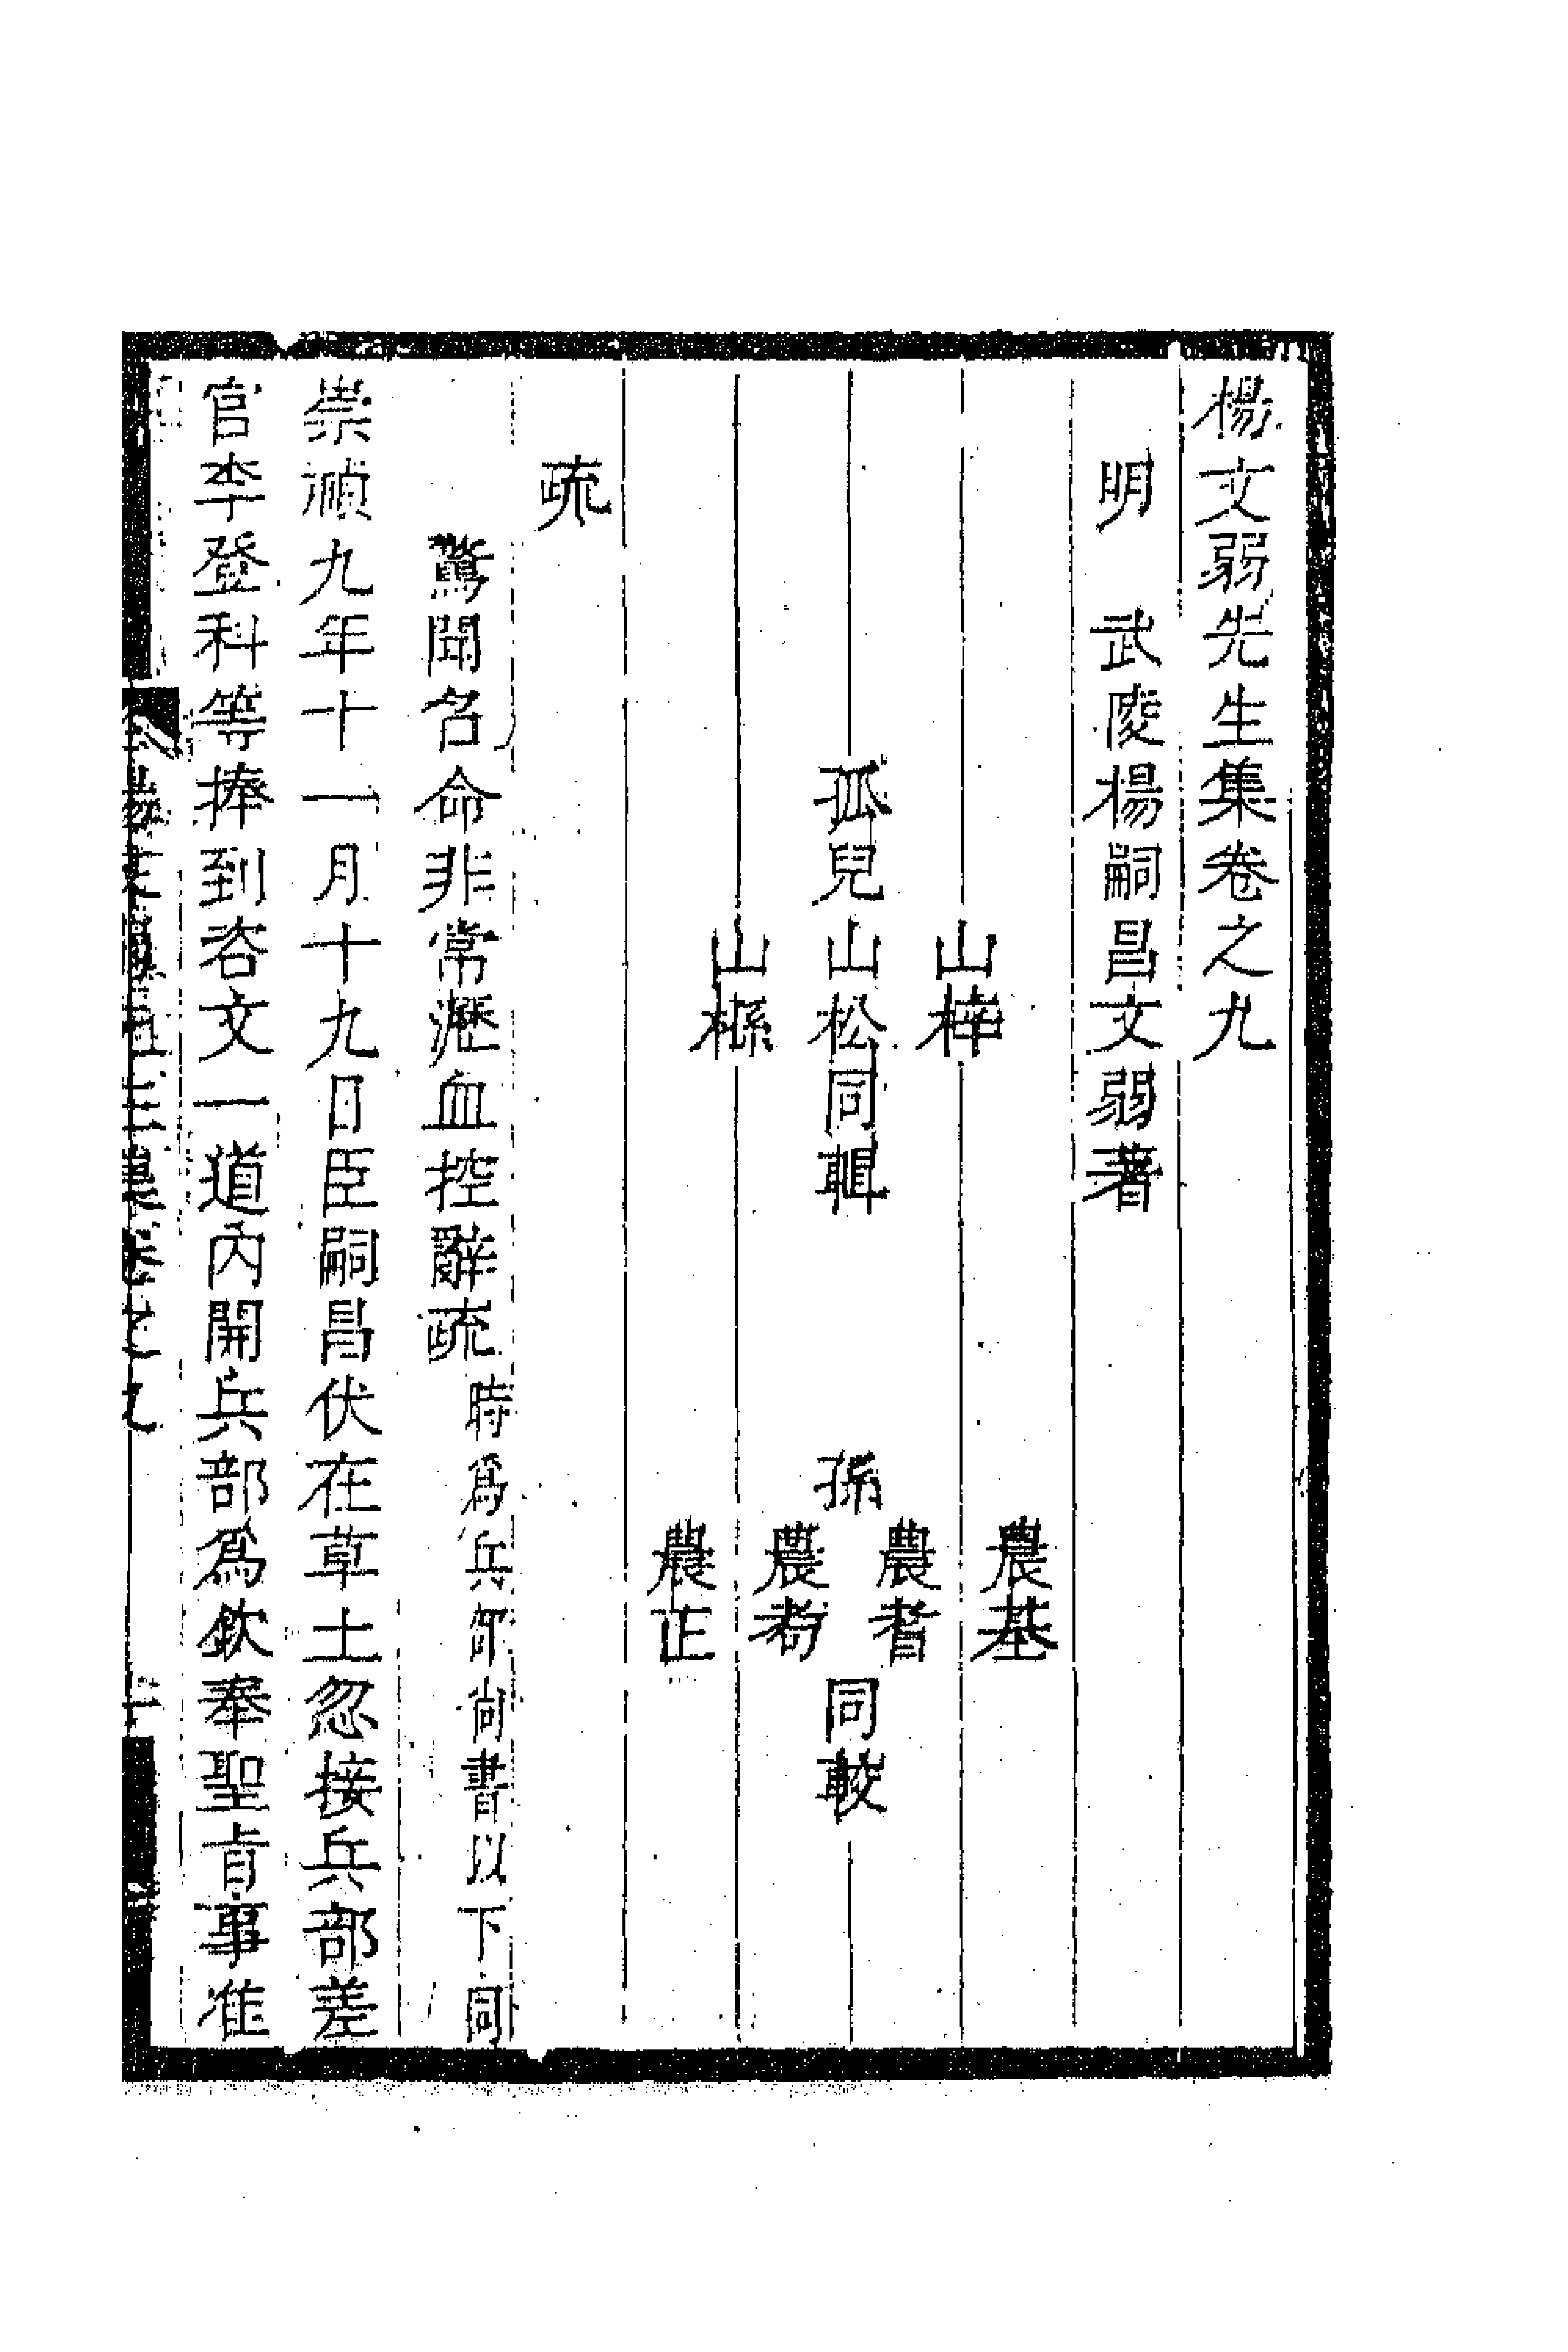 楊文弱先生集卷之九
明 武陵楊嗣昌文弱著
農基
山梓
農耆
孤兒山松同輯 孫 同較
農
山
農正
疏
驚聞名命非常瀝血控辭疏時爲兵部尚書以下同
崇禎九年十一月十九日臣嗣昌伏在草土忽接兵部差
官李登科等捧到咨文一道內開兵部爲欽奉聖旨事准